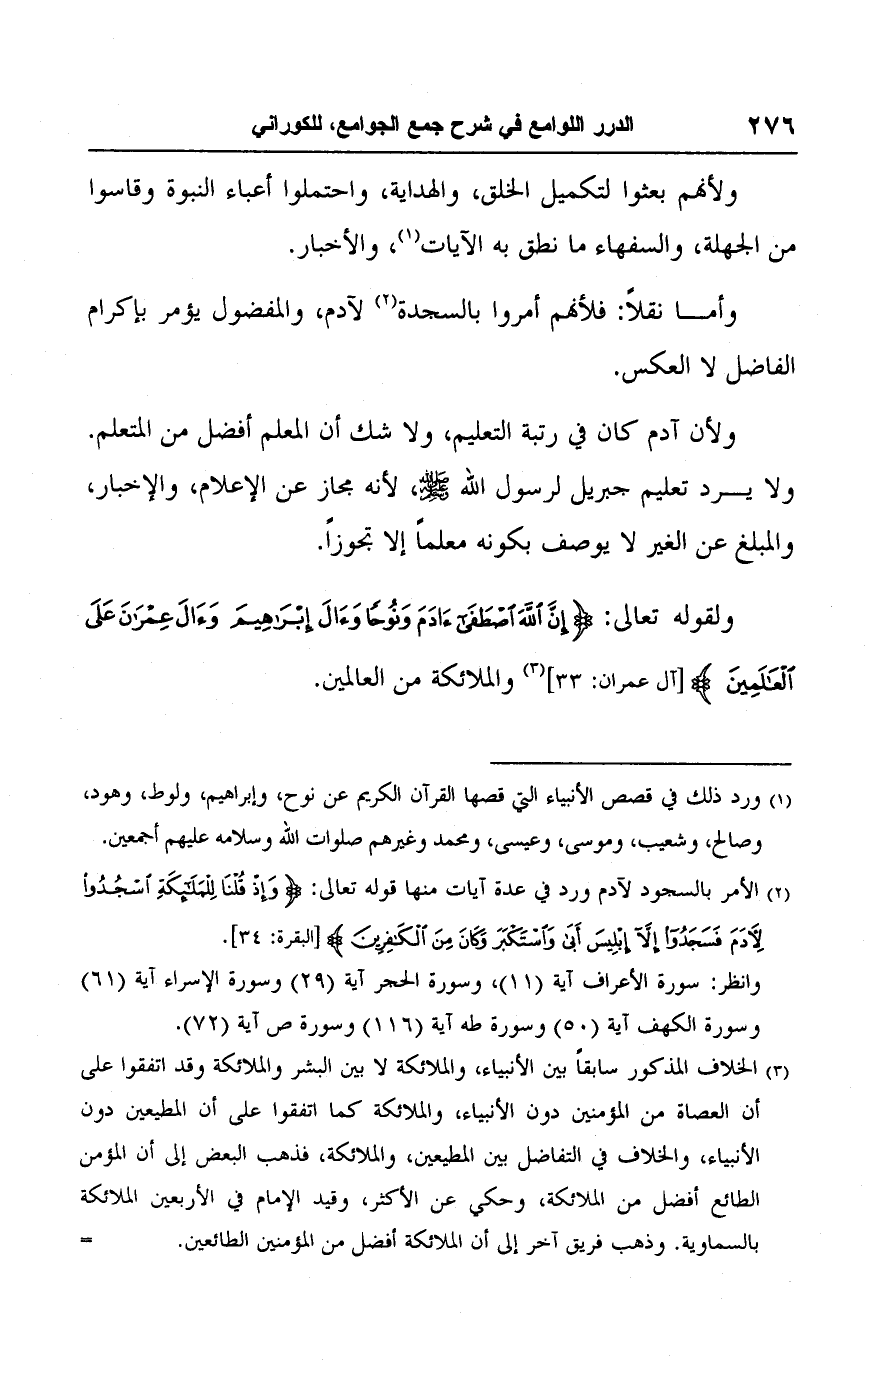 ٢٧٦ الدرر اللوامع في شرح جمع الجوامع، للكوراني
ولأنهم بعثوا لتكميل الخلق، والهداية، واحتملوا أعباء النبوة وقاسوا
من الجهلة، والسفهاء ما نطق به الآيات(١)، والأخبار.
وأمـــا نقلاً: فلأنهم أمروا بالسجدة(٢) لآدم، والمفضول يؤمر بإكرام
الفاضل لا العكس.
ولأن آدم كان في رتبة التعليم، ولا شك أن المعلم أفضل من المتعلم.
ولا يـــرد تعليم جبريل لرسول الله ﷺ، لأنه مجاز عن الإعلام، والإخبار،
والمبلغ عن الغير لا يوصف بكونه معلماً إلا تجوزاً.
ولقوله تعالى: ﴿ إِنَّ ٱللَّهَ ٱصْطَفَىٰٓ ءَادَمَ وَنُوحًا وَءَالَ إِبْرَٰهِيمَ وَءَالَ عِمْرَٰنَ عَلَى
ٱلْعَٰلَمِينَ ﴾ [آل عمران: ٣٣](٣) والملائكة من العالمين.
(١) ورد ذلك في قصص الأنبياء التي قصها القرآن الكريم عن نوح، وإبراهيم، ولوط، وهود،
وصالح، وشعيب، وموسى، وعيسى، ومحمد وغيرهم صلوات الله وسلامه عليهم أجمعين.
(٢) الأمر بالسجود لآدم ورد في عدة آيات منها قوله تعالى: ﴿ وَإِذْ قُلْنَا لِلْمَلَٰٓئِكَةِ ٱسْجُدُوا۟
لِأٓدَمَ فَسَجَدُوٓا۟ إِلَّآ إِبْلِيسَ أَبَىٰ وَٱسْتَكْبَرَ وَكَانَ مِنَ ٱلْكَٰفِرِينَ ﴾ [البقرة: ٣٤].
وانظر: سورة الأعراف آية (١١)، وسورة الحجر آية (٢٩) وسورة الإسراء آية (٦١)
وسورة الكهف آية (٥٠) وسورة طه آية (١١٦) وسورة ص آية (٧٢).
(٣) الخلاف المذكور سابقاً بين الأنبياء، والملائكة لا بين البشر والملائكة وقد اتفقوا على
أن العصاة من المؤمنين دون الأنبياء، والملائكة كما اتفقوا على أن المطيعين دون
الأنبياء، والخلاف في التفاضل بين المطيعين، والملائكة، فذهب البعض إلى أن المؤمن
الطائع أفضل من الملائكة، وحكي عن الأكثر، وقيد الإمام في الأربعين الملائكة
بالسماوية. وذهب فريق آخر إلى أن الملائكة أفضل من المؤمنين الطائعين. =